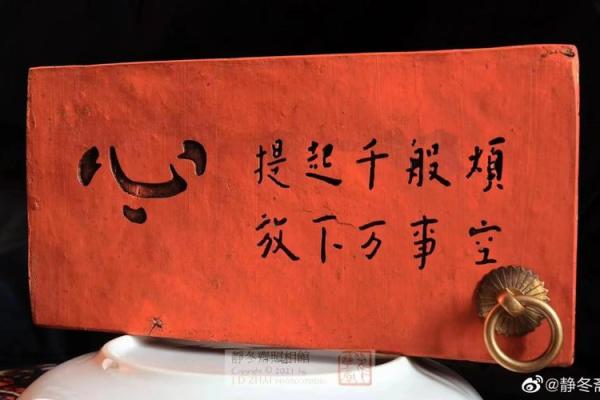 心
提起千般烦
放下万事空
静冬齋照相館
Copyright © 2021 by
J D ZHAI PHOTO STUDIO
@静冬斋